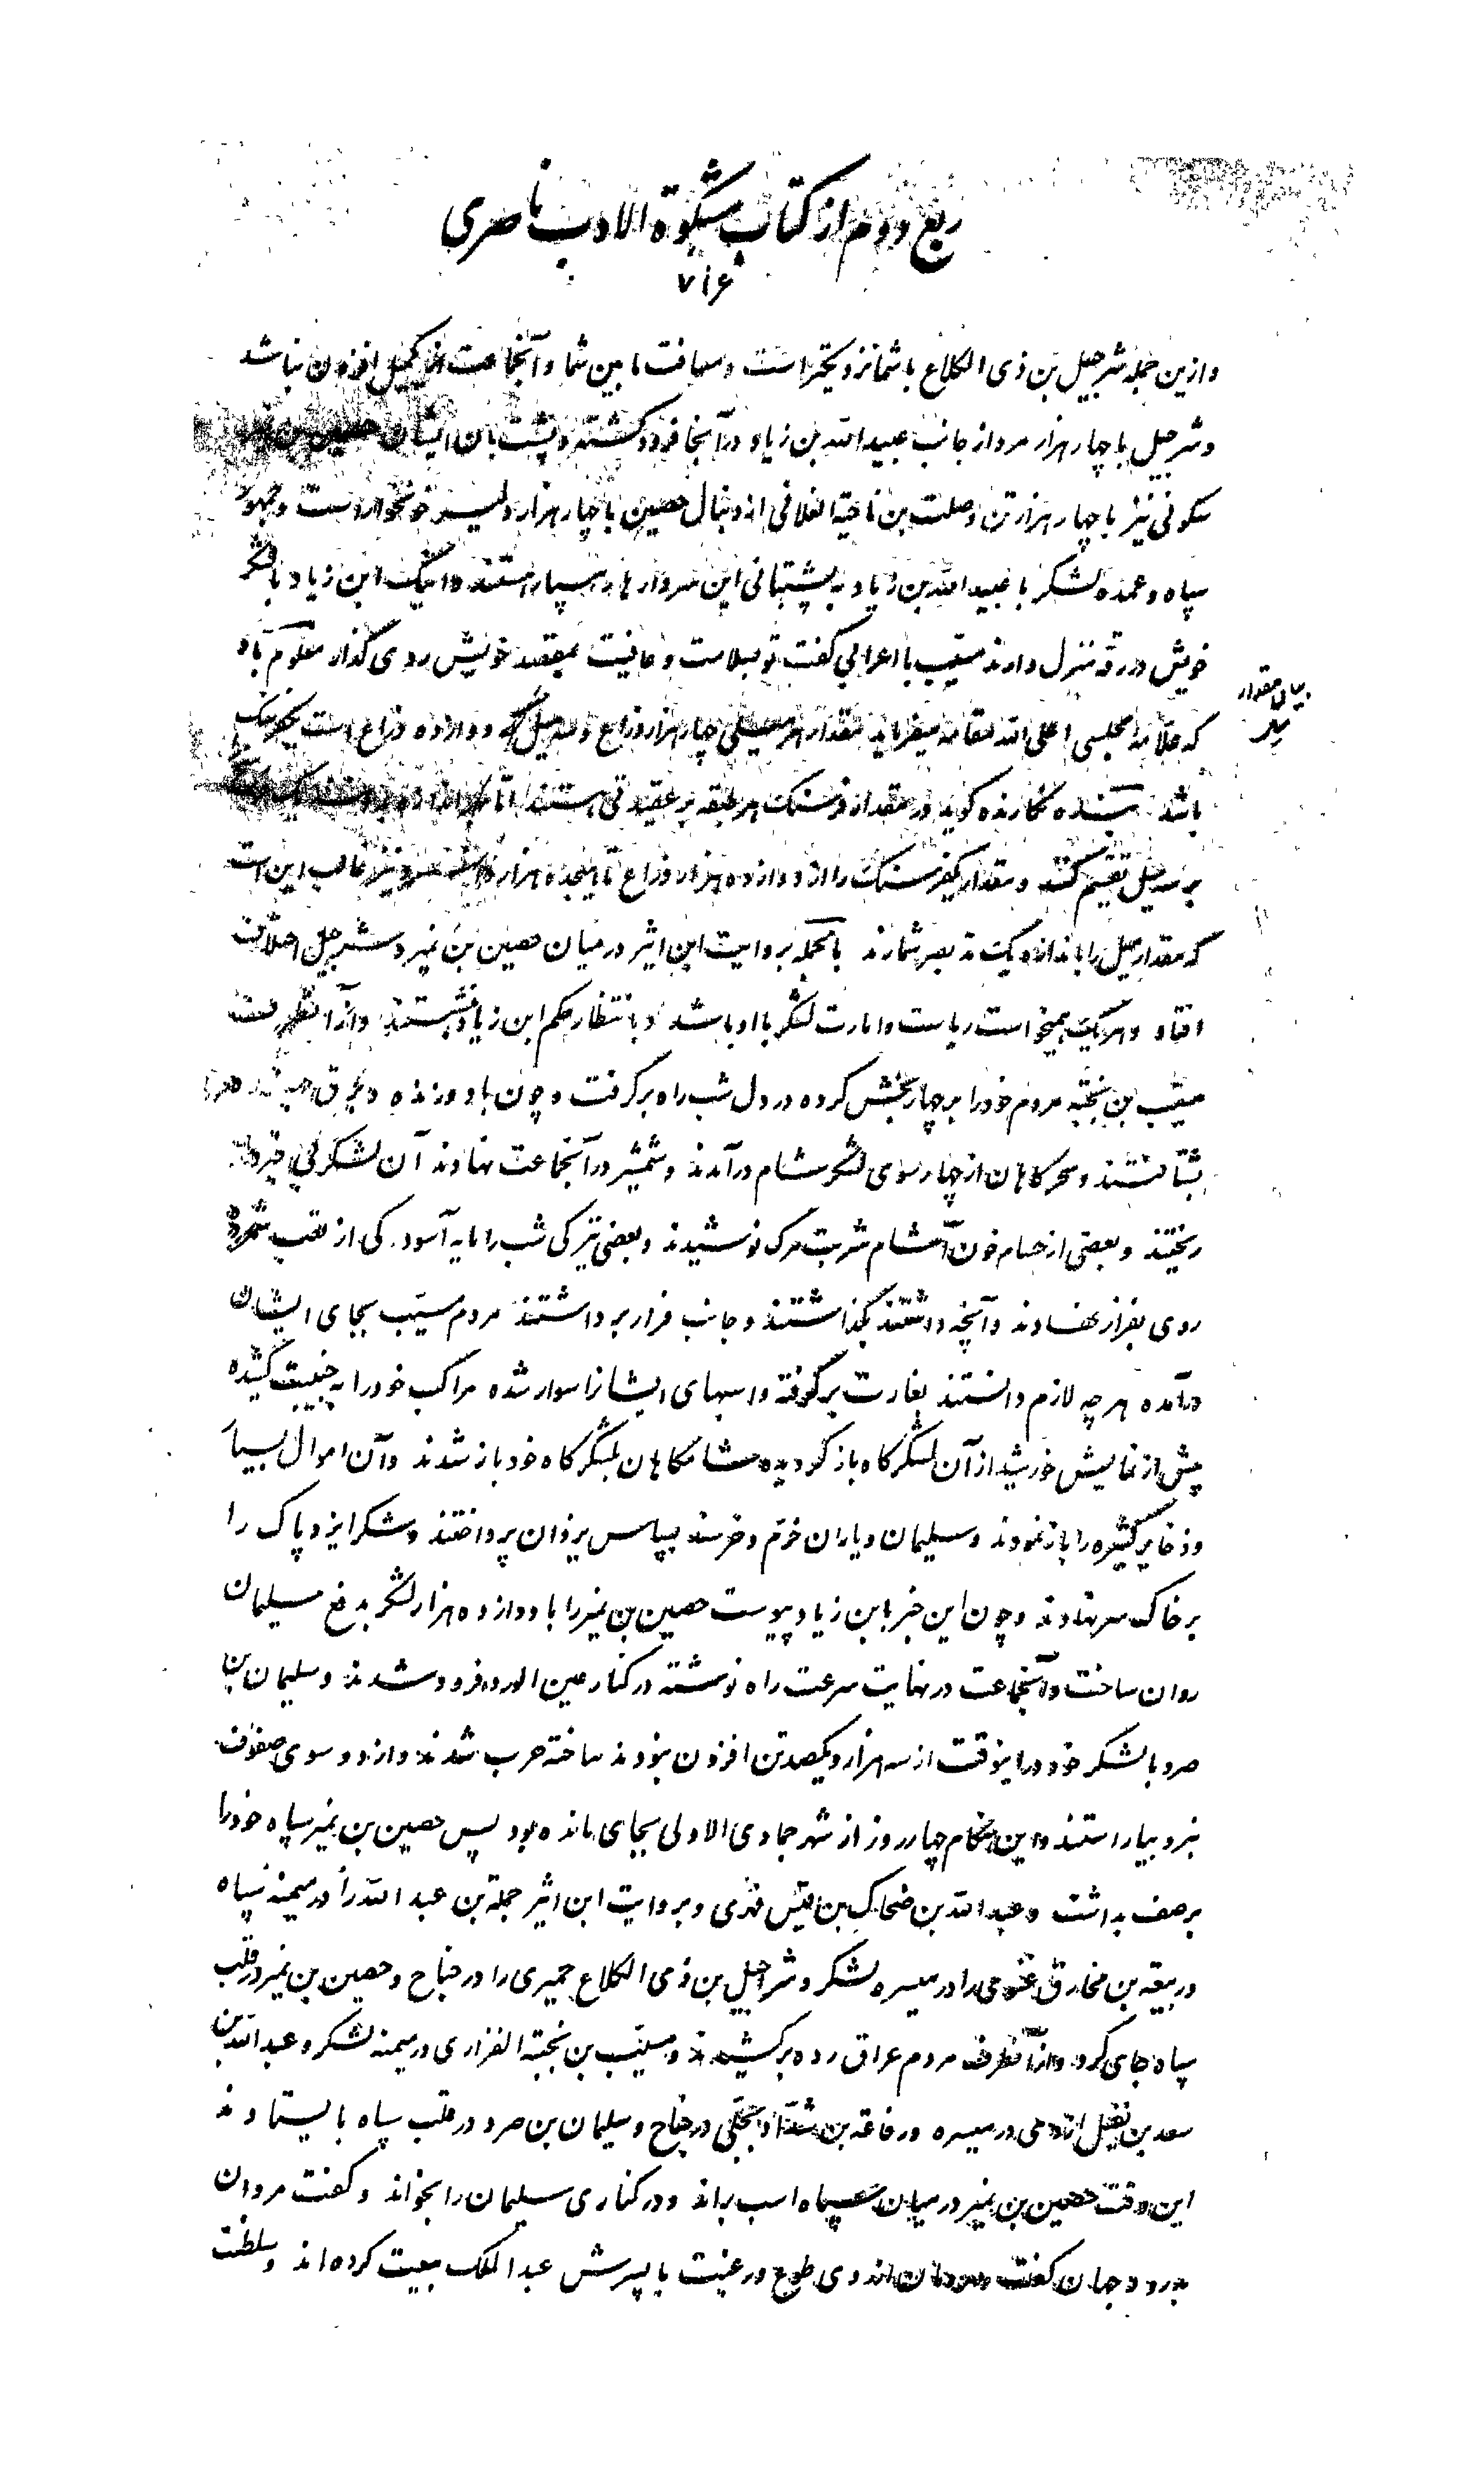 ربع دوم از کتاب مشکوة الادب ناصری
۷۱۶
و ازین جمله شرجیل بن ذی الکلاع با شما نزدیکتر است و مسافت ما بین شما و آنجماعت از یکمیل افزون نباشد
و شرجیل با چهار هزار مرد از جانب عبید الله بن زیاد در آنجا فرود گشته و پشت بان ایشان حصین بن
سکونی نیز با چهار هزار تن و صلت بن ناحیة الغلابی از دنبال حصین با چهار هزار دلیر خونخوار است و جمهور
سپاه و عمده لشکر با عبید الله بن زیاد به پشتبانی این سردارها رهسپار هستند و اینک ابن زیاد با لشکر
خویش در رقه منزل دارند مسیب با اعرابی گفت تو بسلامت و عافیت بمقصد خویش روی گذار معلوم باد
بیان مقدار
میل
که علامه مجلسی اعلی الله مقامه میفرماید مقدار هر میلی چهار هزار ذراع و سه میل که دوازده هزار ذراع است یکفرسنک
باشد بنده نگارنده گوید در مقدار فرسنک هر طبقه بر عقیدتی هستند اما
بر سه میل تقسیم کنند و مقدار یکفرسنک را از دوازده هزار ذراع تا هیجده هزار ذراع و نیز غالب این است
که مقدار میل را باندازه یک مد بصر شمارند بالجمله بروایت ابن اثیر در میان حصین بن نمیر و شرجیل اختلاف
افتاد و هر یک همیخواست ریاست و امارت لشکر با او باشد و بانتظار حکم ابن زیاد بنشستند و از آنطرف
مسیب بن نجبه مردم خود را بر چهار بخش کرده در دل شب راه برگرفت و چون باد وزنده و برق
بشتافتند و سحرگاهان از چهار سوی لشکر شام درآمدند و شمشیر در آنجماعت نهادند آن لشکر
ریختند و بعضی از حسام خون آشام شربت مرک نوشیدند و بعضی تیرگی شب را مایه آسودگی از تعب شمرده
روی بفرار نهادند و آنچه داشتند بگذاشتند و جانب فرار برداشتند مردم مسیب بجای ایشان
درآمده هر چه لازم دانستند بغارت برگرفته و اسبهای ایشانرا سوار شده مراکب خود را به جنیبت کشیده
پیش از نمایش خورشید از آن لشکرگاه باز گردیده شامگاهان بلشکرگاه خود باز شدند و آن اموال بسیار
و ذخایر کثیره را باز نمودند و سلیمان و یاران خرم و خرسند بسپاس یزدان پرداختند و شکر ایزد پاک را
بر خاک سر نهادند و چون این خبر بابن زیاد پیوست حصین بن نمیر را با دوازده هزار لشکر بدفع سلیمان
روان ساخت و آنجماعت در نهایت سرعت راه نوشته در کنار عین الورد فرود شدند و سلیمان بن
صرد با لشکر خود در اینوقت از سه هزار و یکصد تن افزون نبودند ساخته حرب شدند و از دو سوی صفوف
نبرد بیاراستند و این هنگام چهار روز از شهر جمادی الاولی بجای مانده بود پس حصین بن نمیر سپاه خود را
بر صف بداشت و عبد الله بن ضحاک بن قیس فهری و بروایت ابن اثیر جملة بن عبد الله را در میمنه سپاه
و ربیعه بن مخارق غنوی را در میسره لشکر و شراحیل بن ذی الکلاع حمیری را در جناح و حصین بن نمیر در قلب
سپاه جای کرد و از آنطرف مردم عراق رده برکشیدند و مسیب بن نجبة الفزاری در میمنه لشکر و عبد الله بن
سعد بن نفیل ازدی در میسره و رفاعة بن شداد بجلی در جناح و سلیمان بن صرد در قلب سپاه بایستادند
این وقت حصین بن نمیر در میان سپاه اسب براند و در کناری سلیمان را بخواند و گفت مروان
بدرود جهان گفت و مردمان از روی طوع و رغبت با پسرش عبد الملک بیعت کرده اند و سلطنت